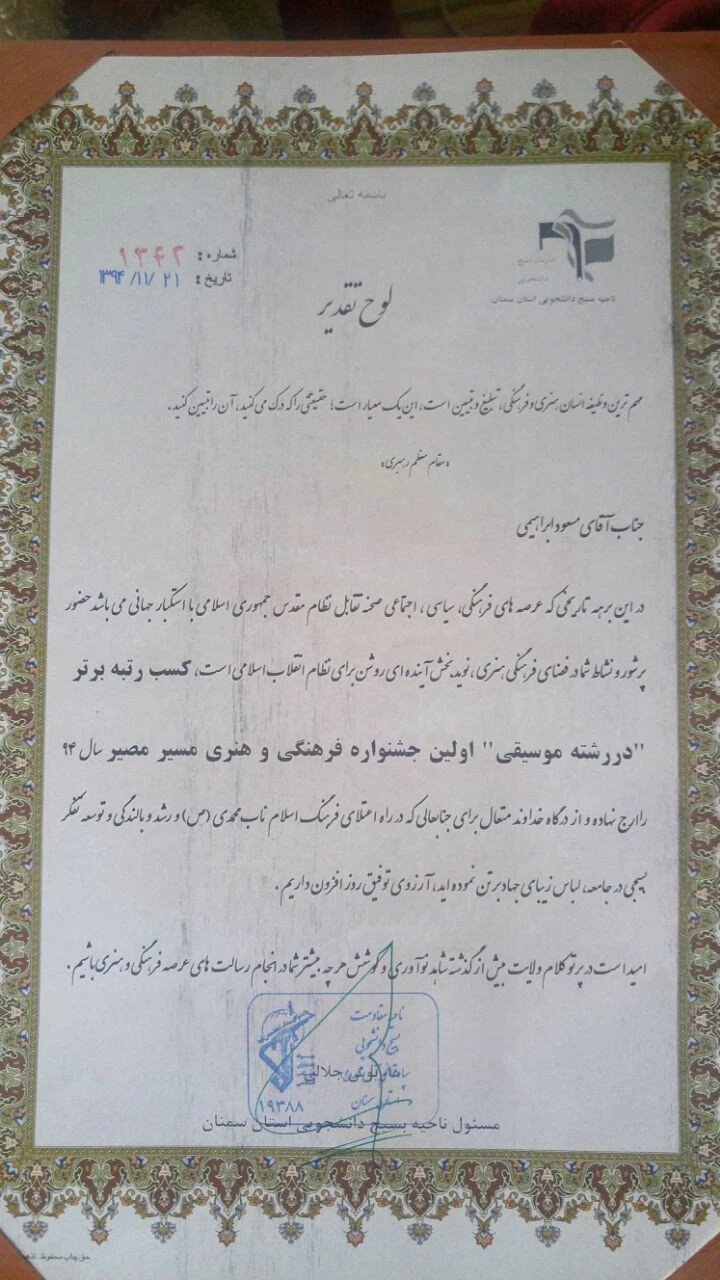 باسمه تعالی
سازمان بسیج
دانشجویی
ناحیه بسیج دانشجویی استان سمنان
شماره : ۱۳۴۲
تاریخ : ۱۳۹۴/۱۱/۲۱
لوح تقدیر
مهم ترین وظیفه انسان هنری و فرهنگی، تبلیغ و تبیین است، این یک معیار است؛ حقیقتی را که درک می کنید، آن را تبیین کنید.
«مقام معظم رهبری»
جناب آقای مسعود ابراهیمی
در این برهه تاریخی که عرصه های فرهنگی، سیاسی، اجتماعی صحنه تقابل نظام مقدس جمهوری اسلامی با استکبار جهانی می باشد حضور
پرشور و نشاط شما در فضای فرهنگی هنری، نوید بخش آینده ای روشن برای نظام انقلاب اسلامی است، کسب رتبه برتر
"در رشته موسیقی" اولین جشنواره فرهنگی و هنری مسیر مصیر سال ۹۴
را ارج نهاده و از درگاه خداوند متعال برای جنابعالی که در راه اعتلای فرهنگ اسلام ناب محمدی (ص) و رشد و بالندگی و توسعه تفکر
بسیجی در جامعه، لباس زیبای جهاد بر تن نموده اید، آرزوی توفیق روز افزون داریم.
امید است در پرتو کلام ولایت بیش از گذشته شاهد نوآوری و کوشش هر چه بیشتر شما در انجام رسالت های عرصه فرهنگی و هنری باشیم.
ناحیه مقاومت
بسیج دانشجویی
جلالی
استان سمنان
۱۹۳۸۸
مسئول ناحیه بسیج دانشجویی استان سمنان
حق چاپ محفوظ